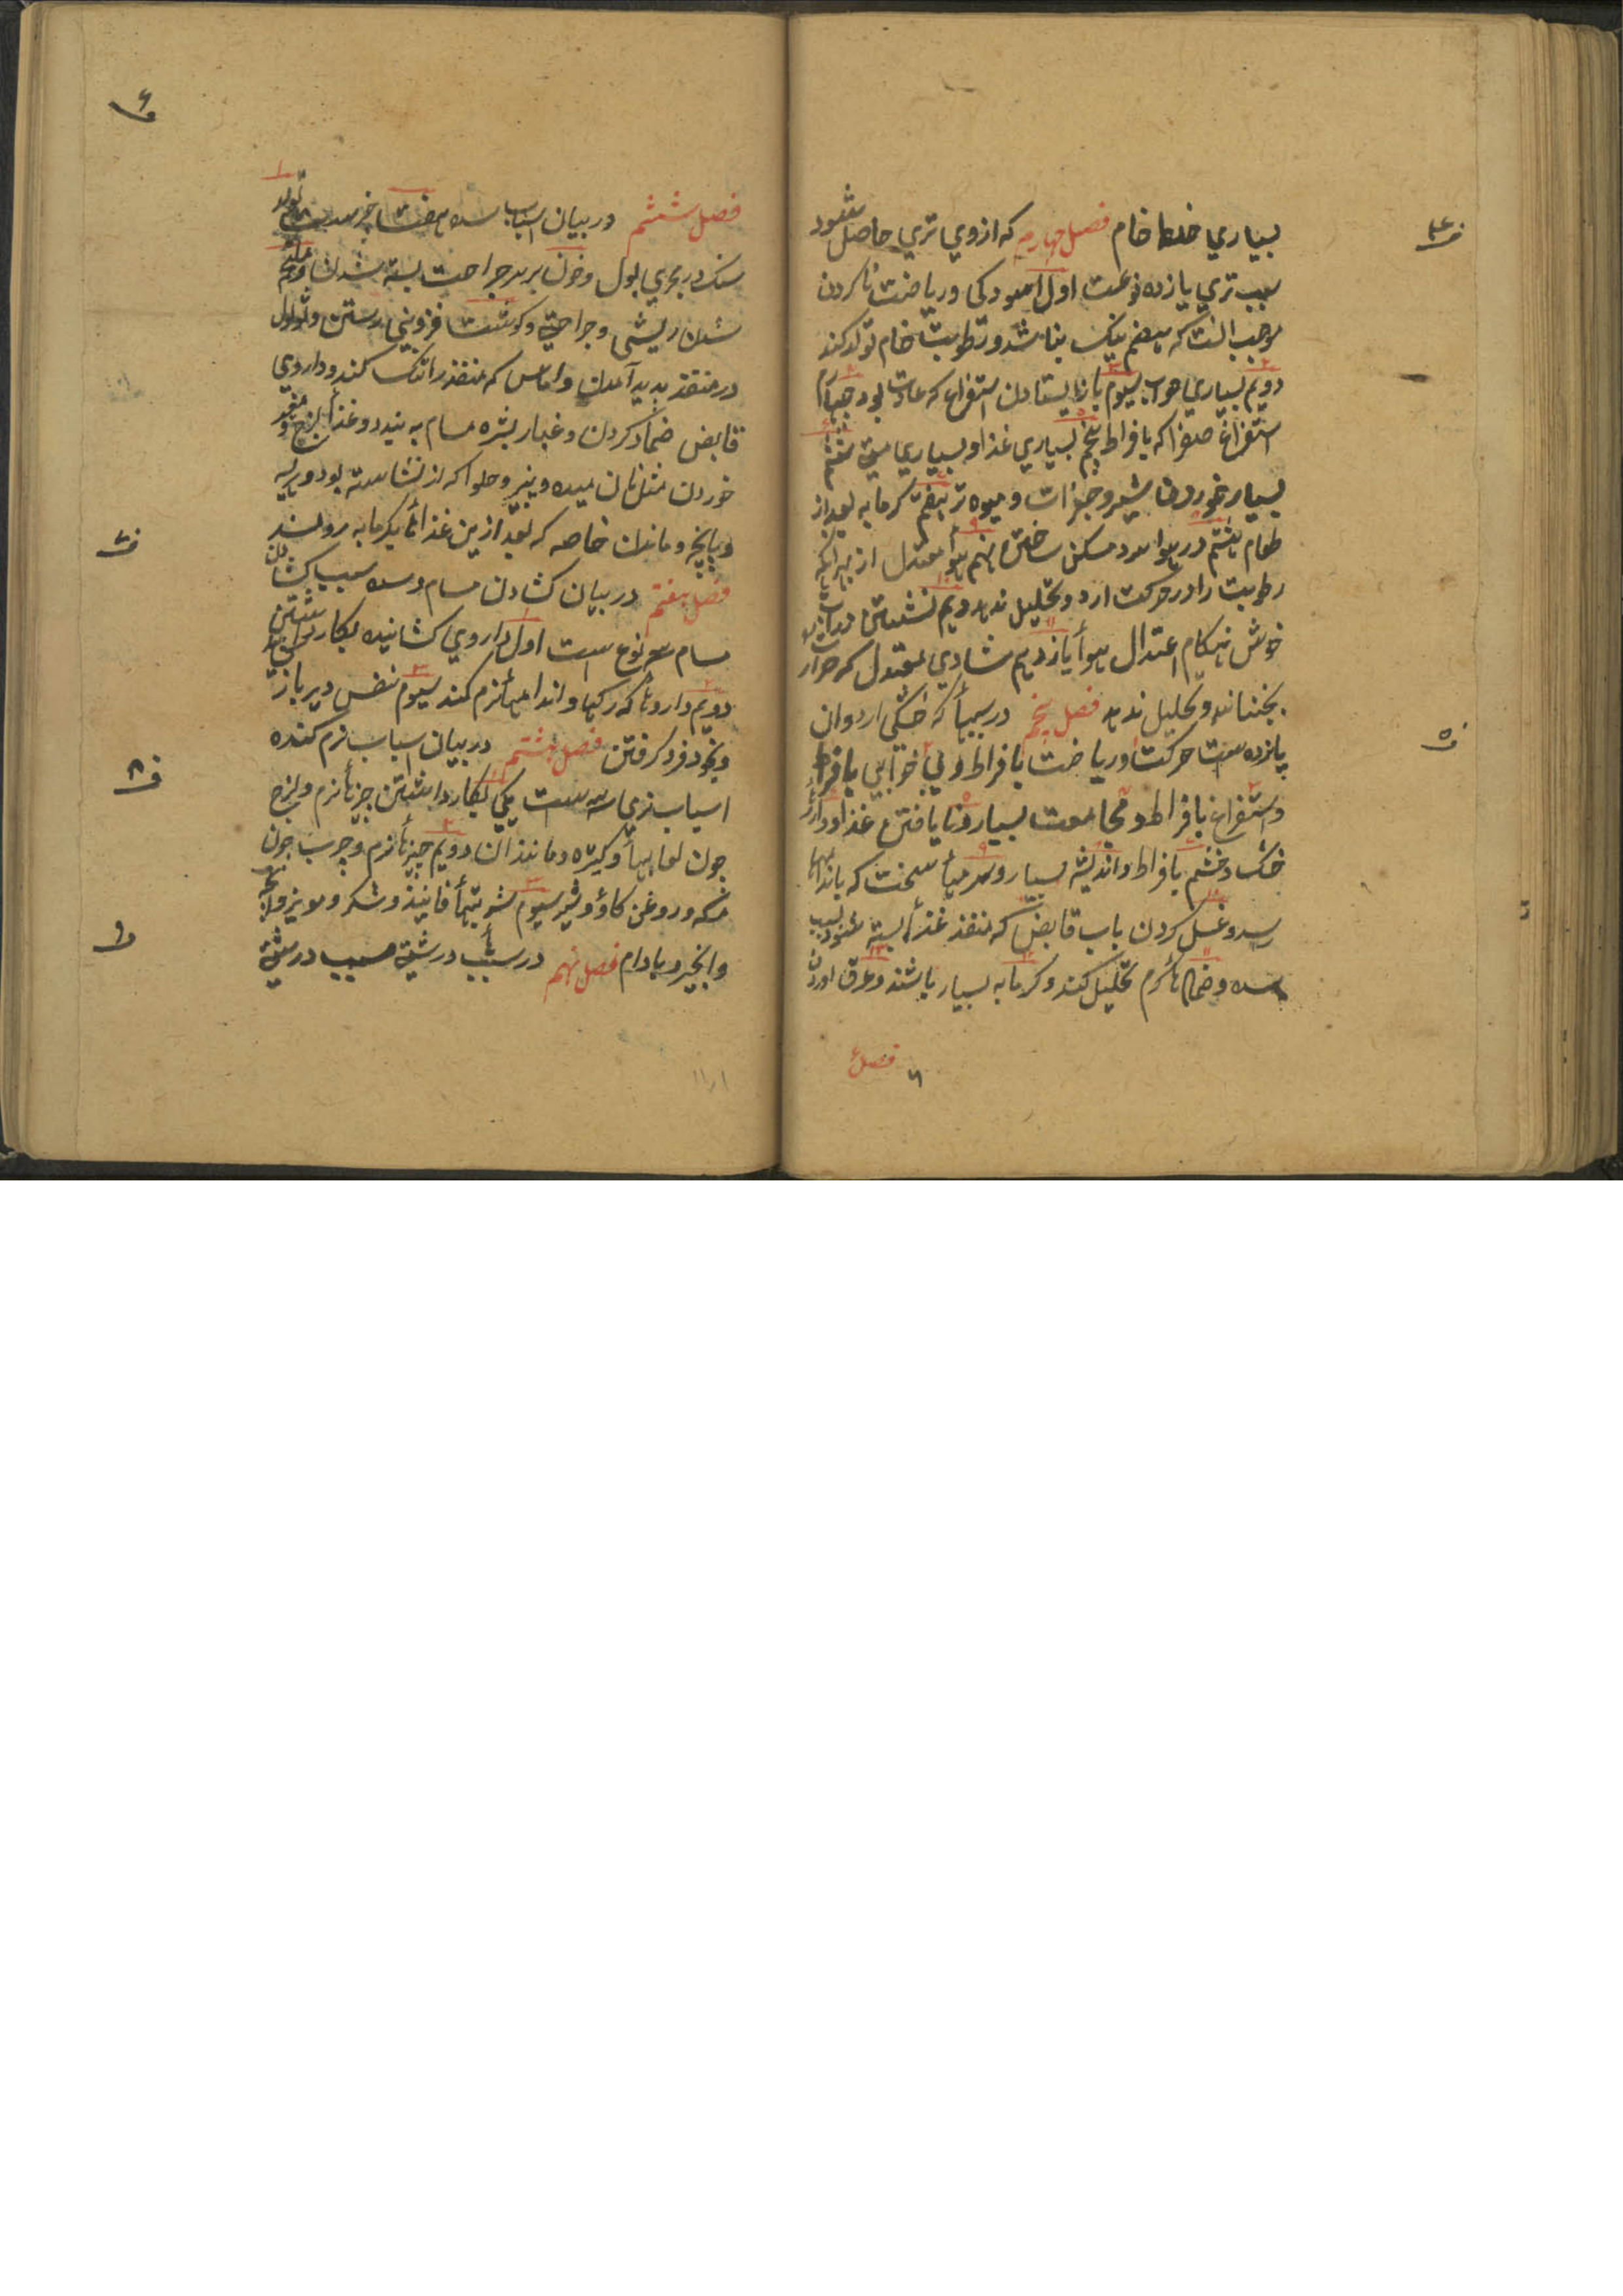 بسیاري خلط خام فصل چهارم که ازوي تري حاصل شود
سبب تري یازده نوعست اول اسودکی وریاضت ناکردن
موجب انست که هضم نیک نباشد و رطوبت خام تولد کند
دویم بسیاري خواب سیوم بازایستادن استفراغ که عادت بود چهارم
استفراغ صفرا که بافراط پنجم بسیاري غذا وبسیاري می ششم
بسیار خوردن شیر وجغرات و میوه تر هفتم کرمابه بعد از
طعام هشتم در هوا سرد مسکن ساختن نهم هوأ معتدل از بهر آنکه
رطوبت را در حرکت ارد وتحلیل ندهد دهم نشستن در آب
خوش هنکام اعتدال هوأ یازدهم شادي معتدل که حرارت
بجنباند وتحلیل ندهد فصل پنجم در سببهأ که خشکی اردوان
پانزده است حرکت وریاضت بافراط وبي خوابي بافراط
واستفراغ بافراط ومجامعت بسیار ونایافتن غذا وداروهأ
خشک وخشم بافراط واندیشه بسیار وسرمیأ سخت که باندامها
رسد وغسل کردن باب قابض که منفذ غذأ بسته شود بسبب
سده وضمادهأ کرم تحلیل کند وکرمابه بسیار باشند وعرق اوردن
فصل ۶
فصل ششم در بیان اسباب سده هفت چیز است تولد
سنک در مجري بول وخون بر سر جراحت بسته شدن
شدن ریشی وجراحتي وکوشت فزوني رستن وثولول
در منفذ پدید آمدن واماس که منفذ را تنک کند وداروي
قابض ضماد کردن وغبار بشره مسام به بندد وغذأ لزج
خوردن مثل نان میده وپنیر وحلوا که از نشاسته بود وهریسه
وپاچه ومانند ان خاصه که بعد ازین غذأها بکرمابه روند
فصل هفتم در بیان کشادن مسام وسده سبب کشادن
مسام سه نوع است اول داروي کشاینده بکار داشتن
دویم داروهأ که رکها واندامهأ نرم کند سیوم نفس دیر باز
وبخود فرو کرفتن فصل هشتم در بیان اسباب نرم کننده
اسباب نرمي سه است یکي بکار داشتن چیزهأ نرم ولزج
چون لعابهأ وکتیره ومانند ان دویم چیزهأ نرم وچرب چون
مسکه وروغن کاؤ وشیر سیوم شربتهأ فانیذ وشکر ومویز
وانجیر وبادام فصل نهم در سببهأ درشتي سبب درشتي